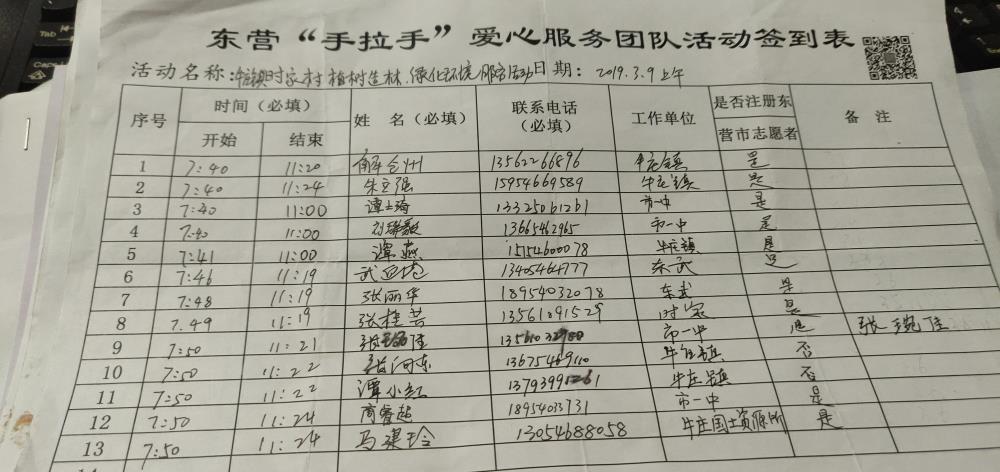 东营“手拉手”爱心服务团队活动签到表
活动名称：牛镇时家村植树造林.绿化环境服务活动日期：2019.3.9上午
序号 时间（必填） 姓名（必填） 联系电话（必填） 工作单位 是否注册东营市志愿者 备注
开始 结束
1 7:40 11:20 解仑州 13562266896 牛庄镇 是
2 7:40 11:24 朱立强 15954669589 牛庄镇 是
3 7:40 11:00 谭士琦 13325061261 市一中 是
4 7:40 11:00 刘瑞毅 13665462965 市一中 是
5 7:41 11:00 谭燕 15154600078 牛庄镇 是
6 7:46 11:19 武 13405464777 东武 是
7 7:48 11:19 张丽华 18954032078 东武 是
8 7.49 11:19 张桂芸 13561091529 时家 是
9 7:50 11:21 张 佳 市一中 是 张琬佳
10 7:50 11:22 张河东 13675469110 牛庄镇 否
11 7:50 11:22 谭小红 牛庄镇 否
12 7:50 11:24 商睿 1895403731 市一中 是
13 7:50 11:24 马建玲 13054688058 牛庄国土资源所 是